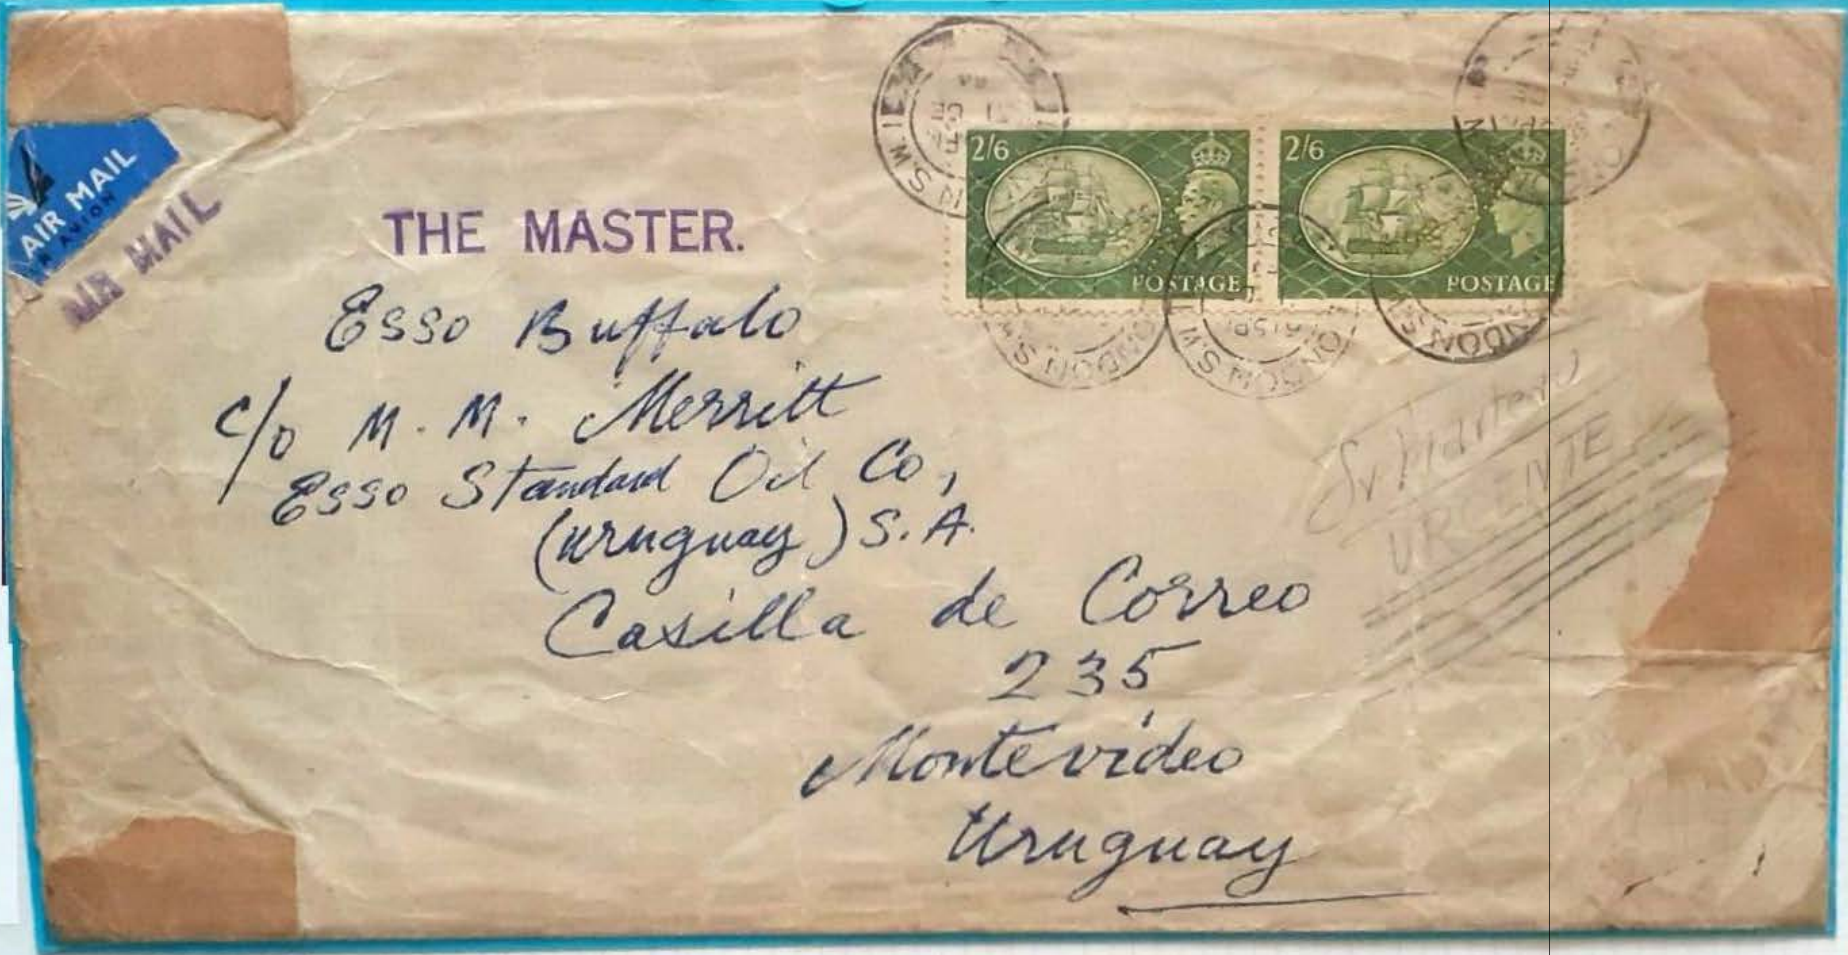 AIR MAIL
PAR AVION
AIR MAIL
THE MASTER.
2/6
POSTAGE
2/6
POSTAGE
LONDON S.W.
LONDON S.W.
Esso Buffalo
c/o M. M. Merritt
Esso Standard Oil Co,
(Uruguay) S.A.
Casilla de Correo
235
Montevideo
Uruguay
URGENTE